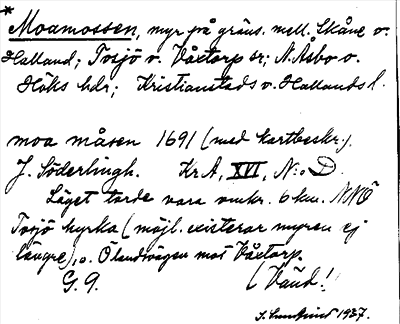 * Moamossen, myr på gräns. mell. Skåne o.
Halland; Tosjö o. Våxtorp sr; N. Åsbo o.
Höks hdr; Kristianstads o. Hallands l.
moa måsen 1691 (med kartbeskr.).
J. Söderlingh. Kr A, XVI, N:o D.
Läget torde vara omkr. 6 km. NNÖ
Tosjö kyrka (möjl. existerar myren ej
längre), o. Ö landsvägen mot Våxtorp.
G. 9. (Vänd!
1937.